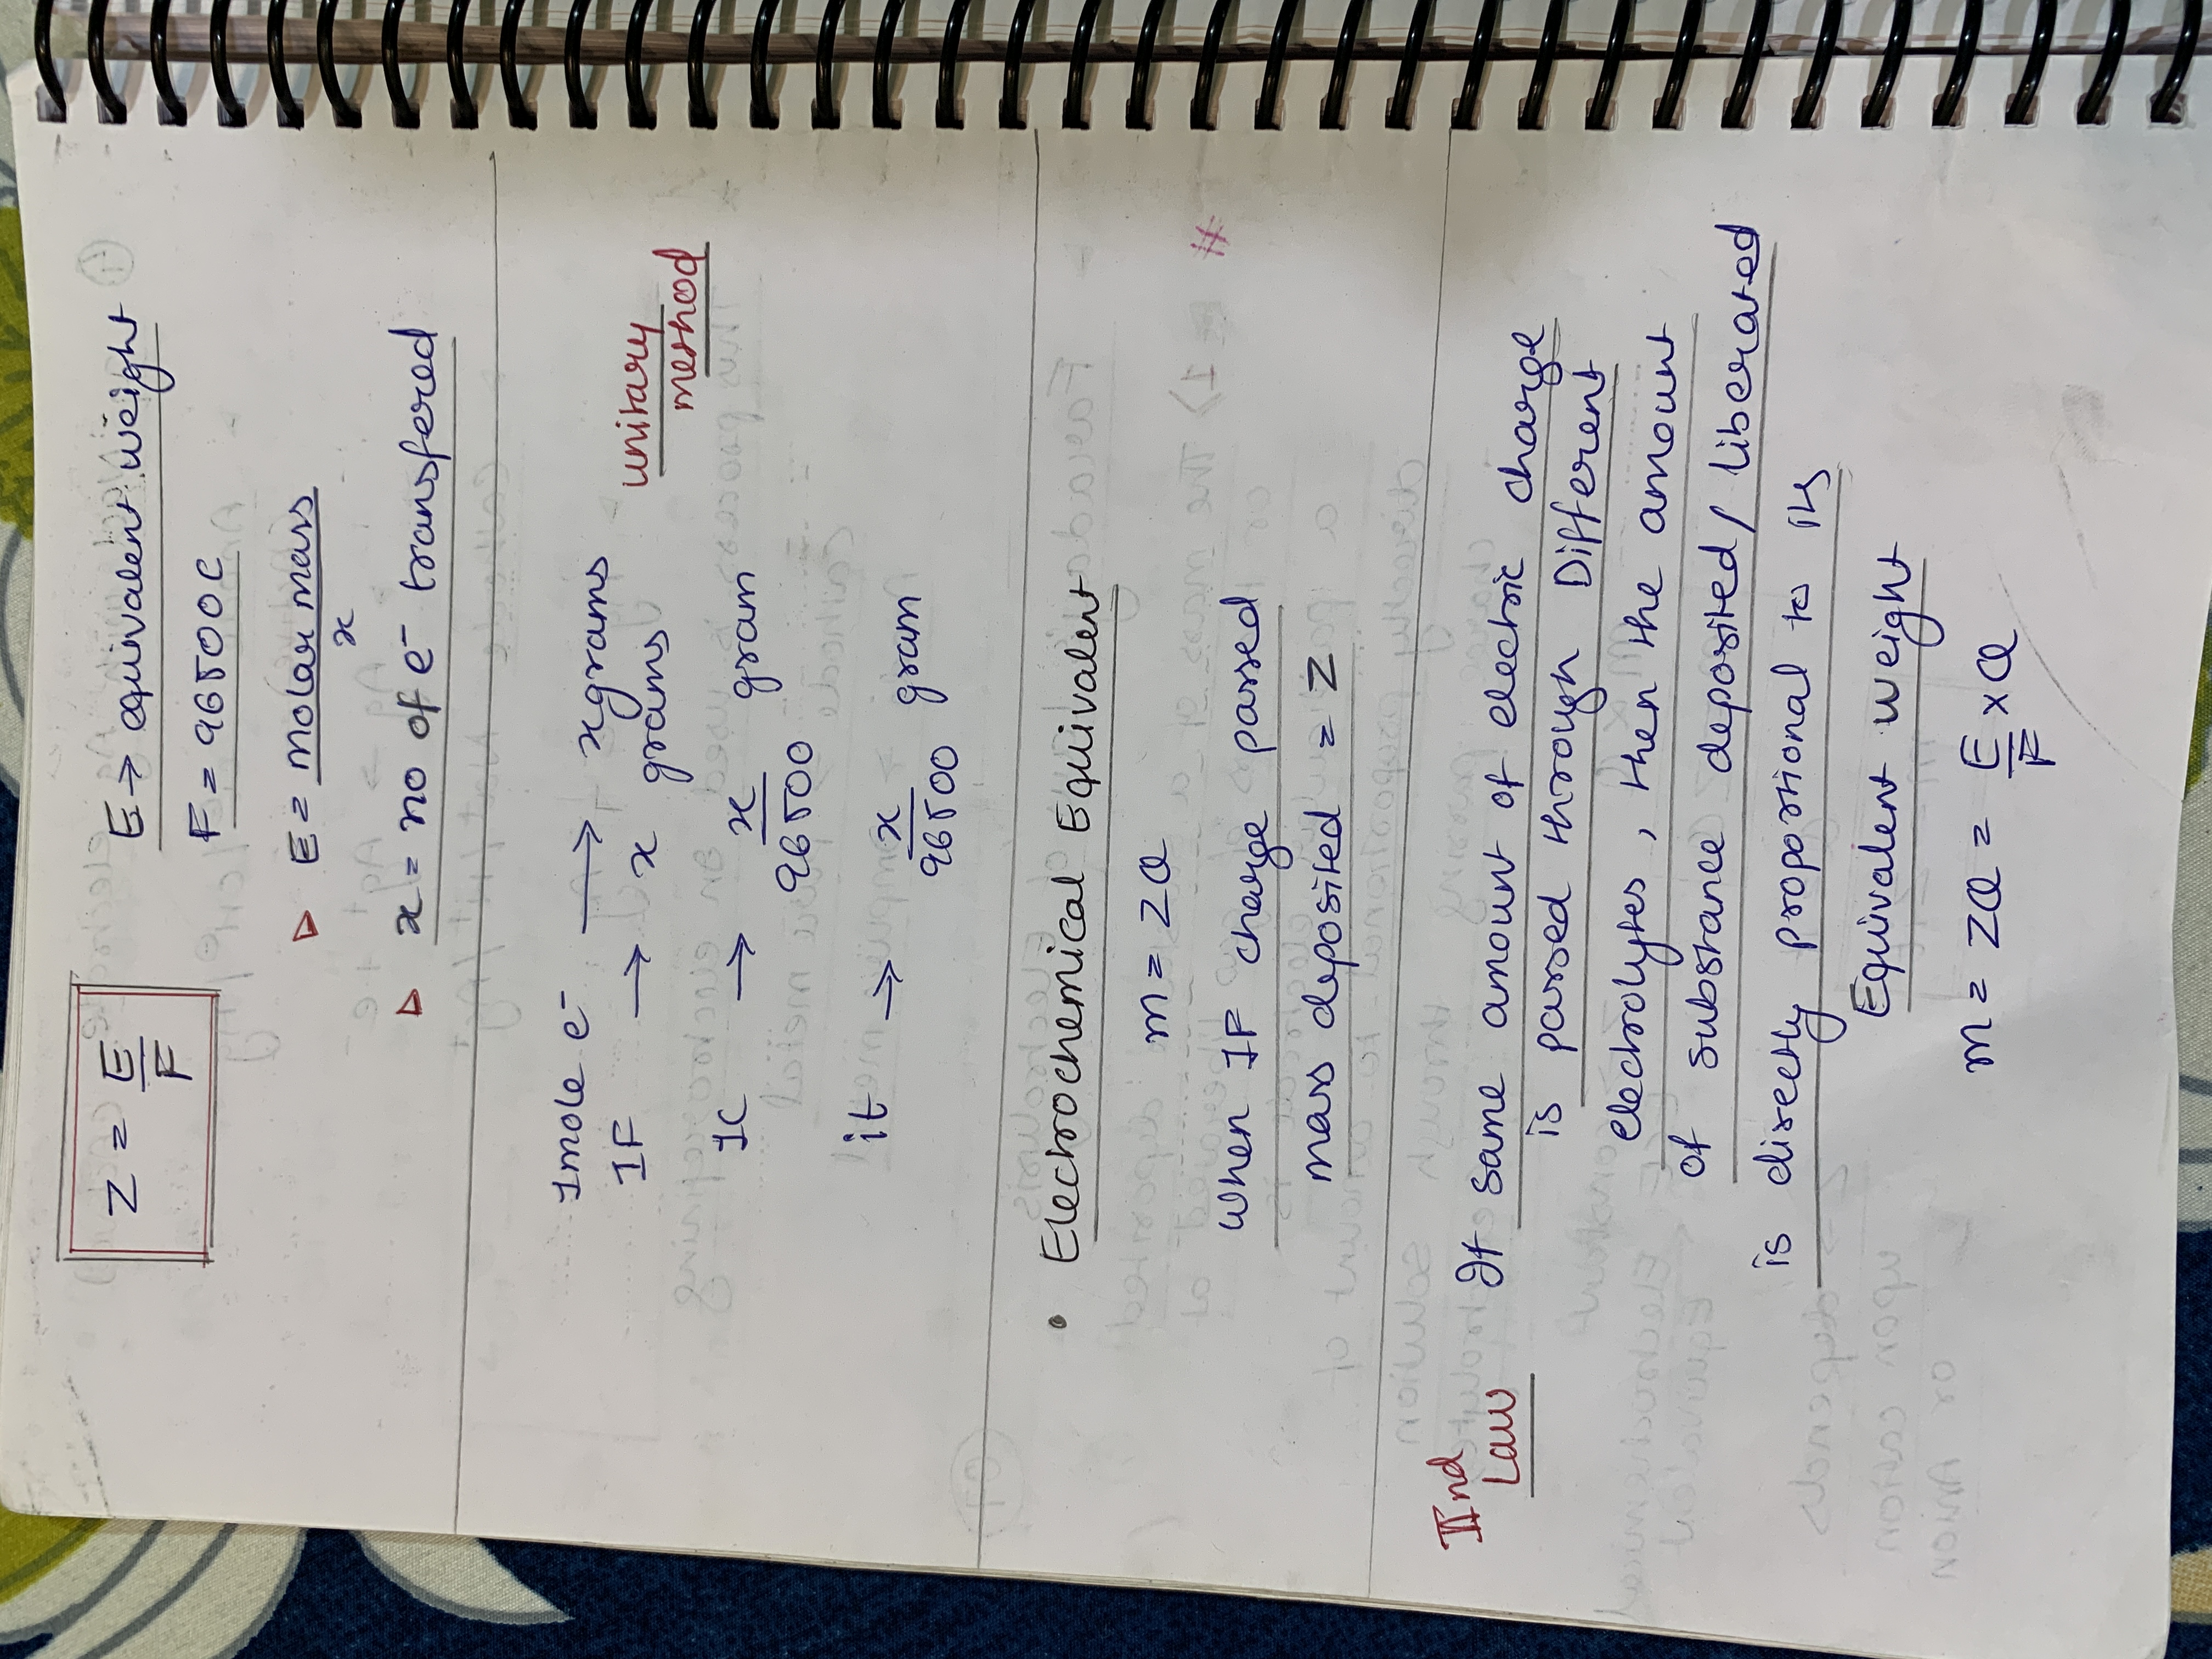 Z = E/F
E → equivalent weight
F = 96500C
▷ E = molar mass/x
▷ x = no of e⁻ transfered
1mole e⁻ → x grams
1F → x grams
unitary
method
1C → x/96500 gram
it → x/96500 gram
• Electrochemical Equivalent
m = ZQ
when 1F charge passed
mass deposited = Z
IInd
Law
If same amount of electric charge
is passed through Different
electrolytes, then the amount
of substance deposited/liberated
is directly proportional to its
Equivalent weight
m = ZQ = E/F × Q